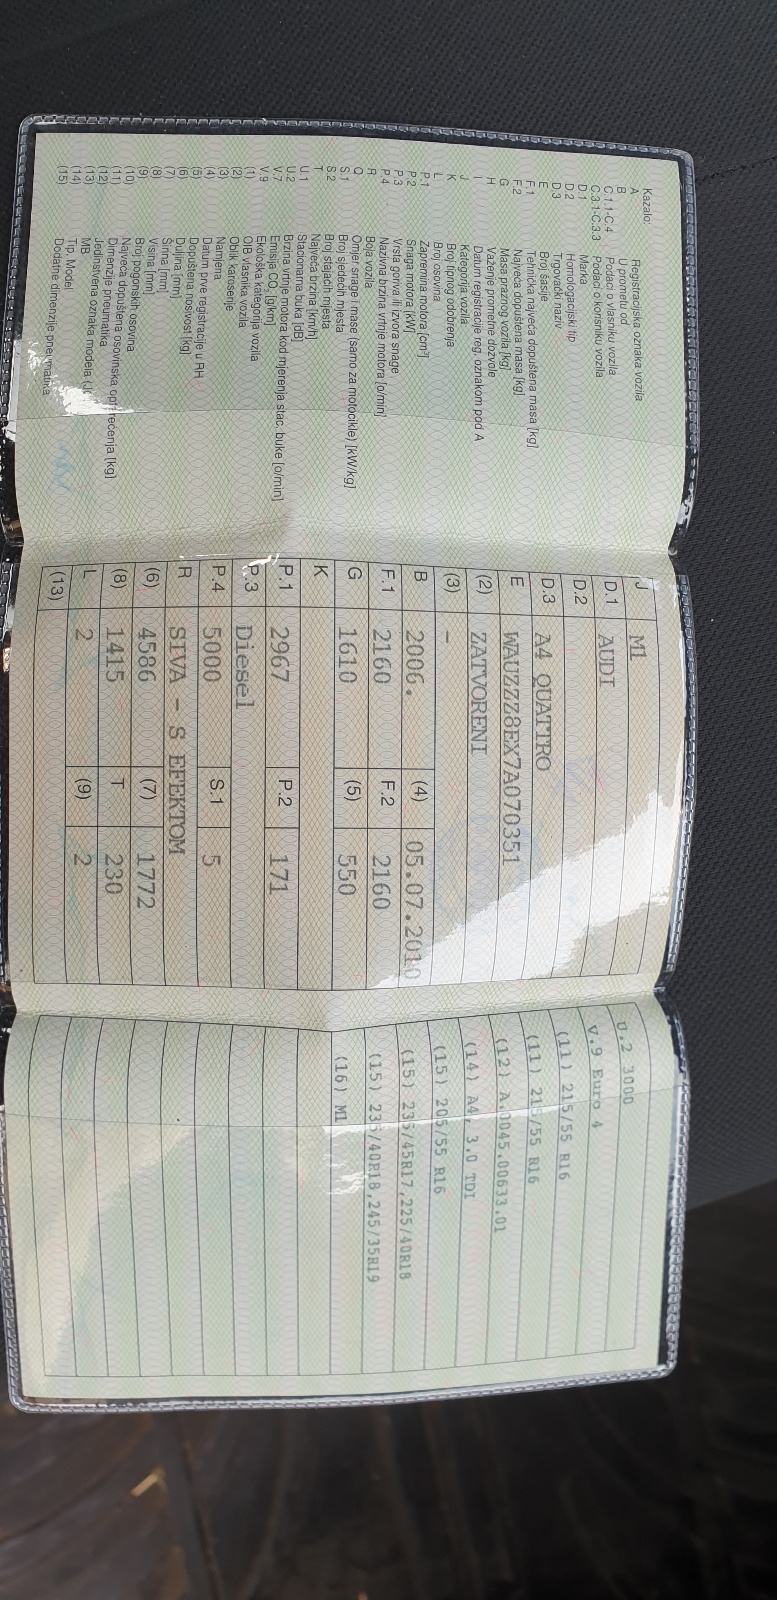 Kazalo:
A Registracijska oznaka vozila
B U prometu od
C.1.1-C.4 Podaci o vlasniku vozila
C.3.1-C.3.3 Podaci o korisniku vozila
D.1 Marka
D.2 Homologacijski tip
D.3 Trgovački naziv
E Broj šasije
F.1 Tehnička najveća dopuštena masa [kg]
F.2 Najveća dopuštena masa [kg]
G Masa praznog vozila [kg]
H Važenje prometne dozvole
I Datum registracije reg. oznakom pod A
J Kategorija vozila
K Broj tipnog odobrenja
L Broj osovina
P.1 Zapremina motora [cm³]
P.2 Snaga motora [kW]
P.3 Vrsta goriva ili izvora snage
P.4 Nazivna brzina vrtnje motora [o/min]
R Boja vozila
Q Omjer snage i mase (samo za motocikle) [kW/kg]
S.1 Broj sjedećih mjesta
S.2 Broj stajaćih mjesta
T Najveća brzina [km/h]
U.1 Stacionarna buka [dB]
U.2 Brzina vrtnje motora kod mjerenja stac. buke [o/min]
V.7 Emisija CO₂ [g/km]
V.9 Ekološka kategorija vozila
(1) OIB vlasnika vozila
(2) Oblik karoserije
(3) Namjena
(4) Datum prve registracije u RH
(5) Dopuštena nosivost [kg]
(6) Duljina [mm]
(7) Širina [mm]
(8) Visina [mm]
(9) Broj pogonskih osovina
(10) Najveća dopuštena osovinska opterećenja [kg]
(11) Dimenzije pneumatika
(12) Jedinstvena oznaka modela
(13) MB
(14) Tip, Model
(15) Dodatne dimenzije pneumatika
J M1
D.1 AUDI
D.2
D.3 A4 QUATTRO
E WAUZZZ8EX7A070351
(2) ZATVORENI
(3) -
B 2006. (4) 05.07.2010
F.1 2160 F.2 2160
G 1610 (5) 550
K
P.1 2967 P.2 171
P.3 Diesel
P.4 5000 S.1 5
R SIVA - S EFEKTOM
(6) 4586 (7) 1772
(8) 1415 T 230
L 2 (9) 2
(13)
U.2 3000
V.9 Euro 4
(11) 215/55 R16
(11) 215/55 R16
(12) A.0045.00633.01
(14) A4, 3.0 TDI
(15) 205/55 R16
(15) 235/45R17,225/40R18
(15) 235/40R18,245/35R19
(16) M1